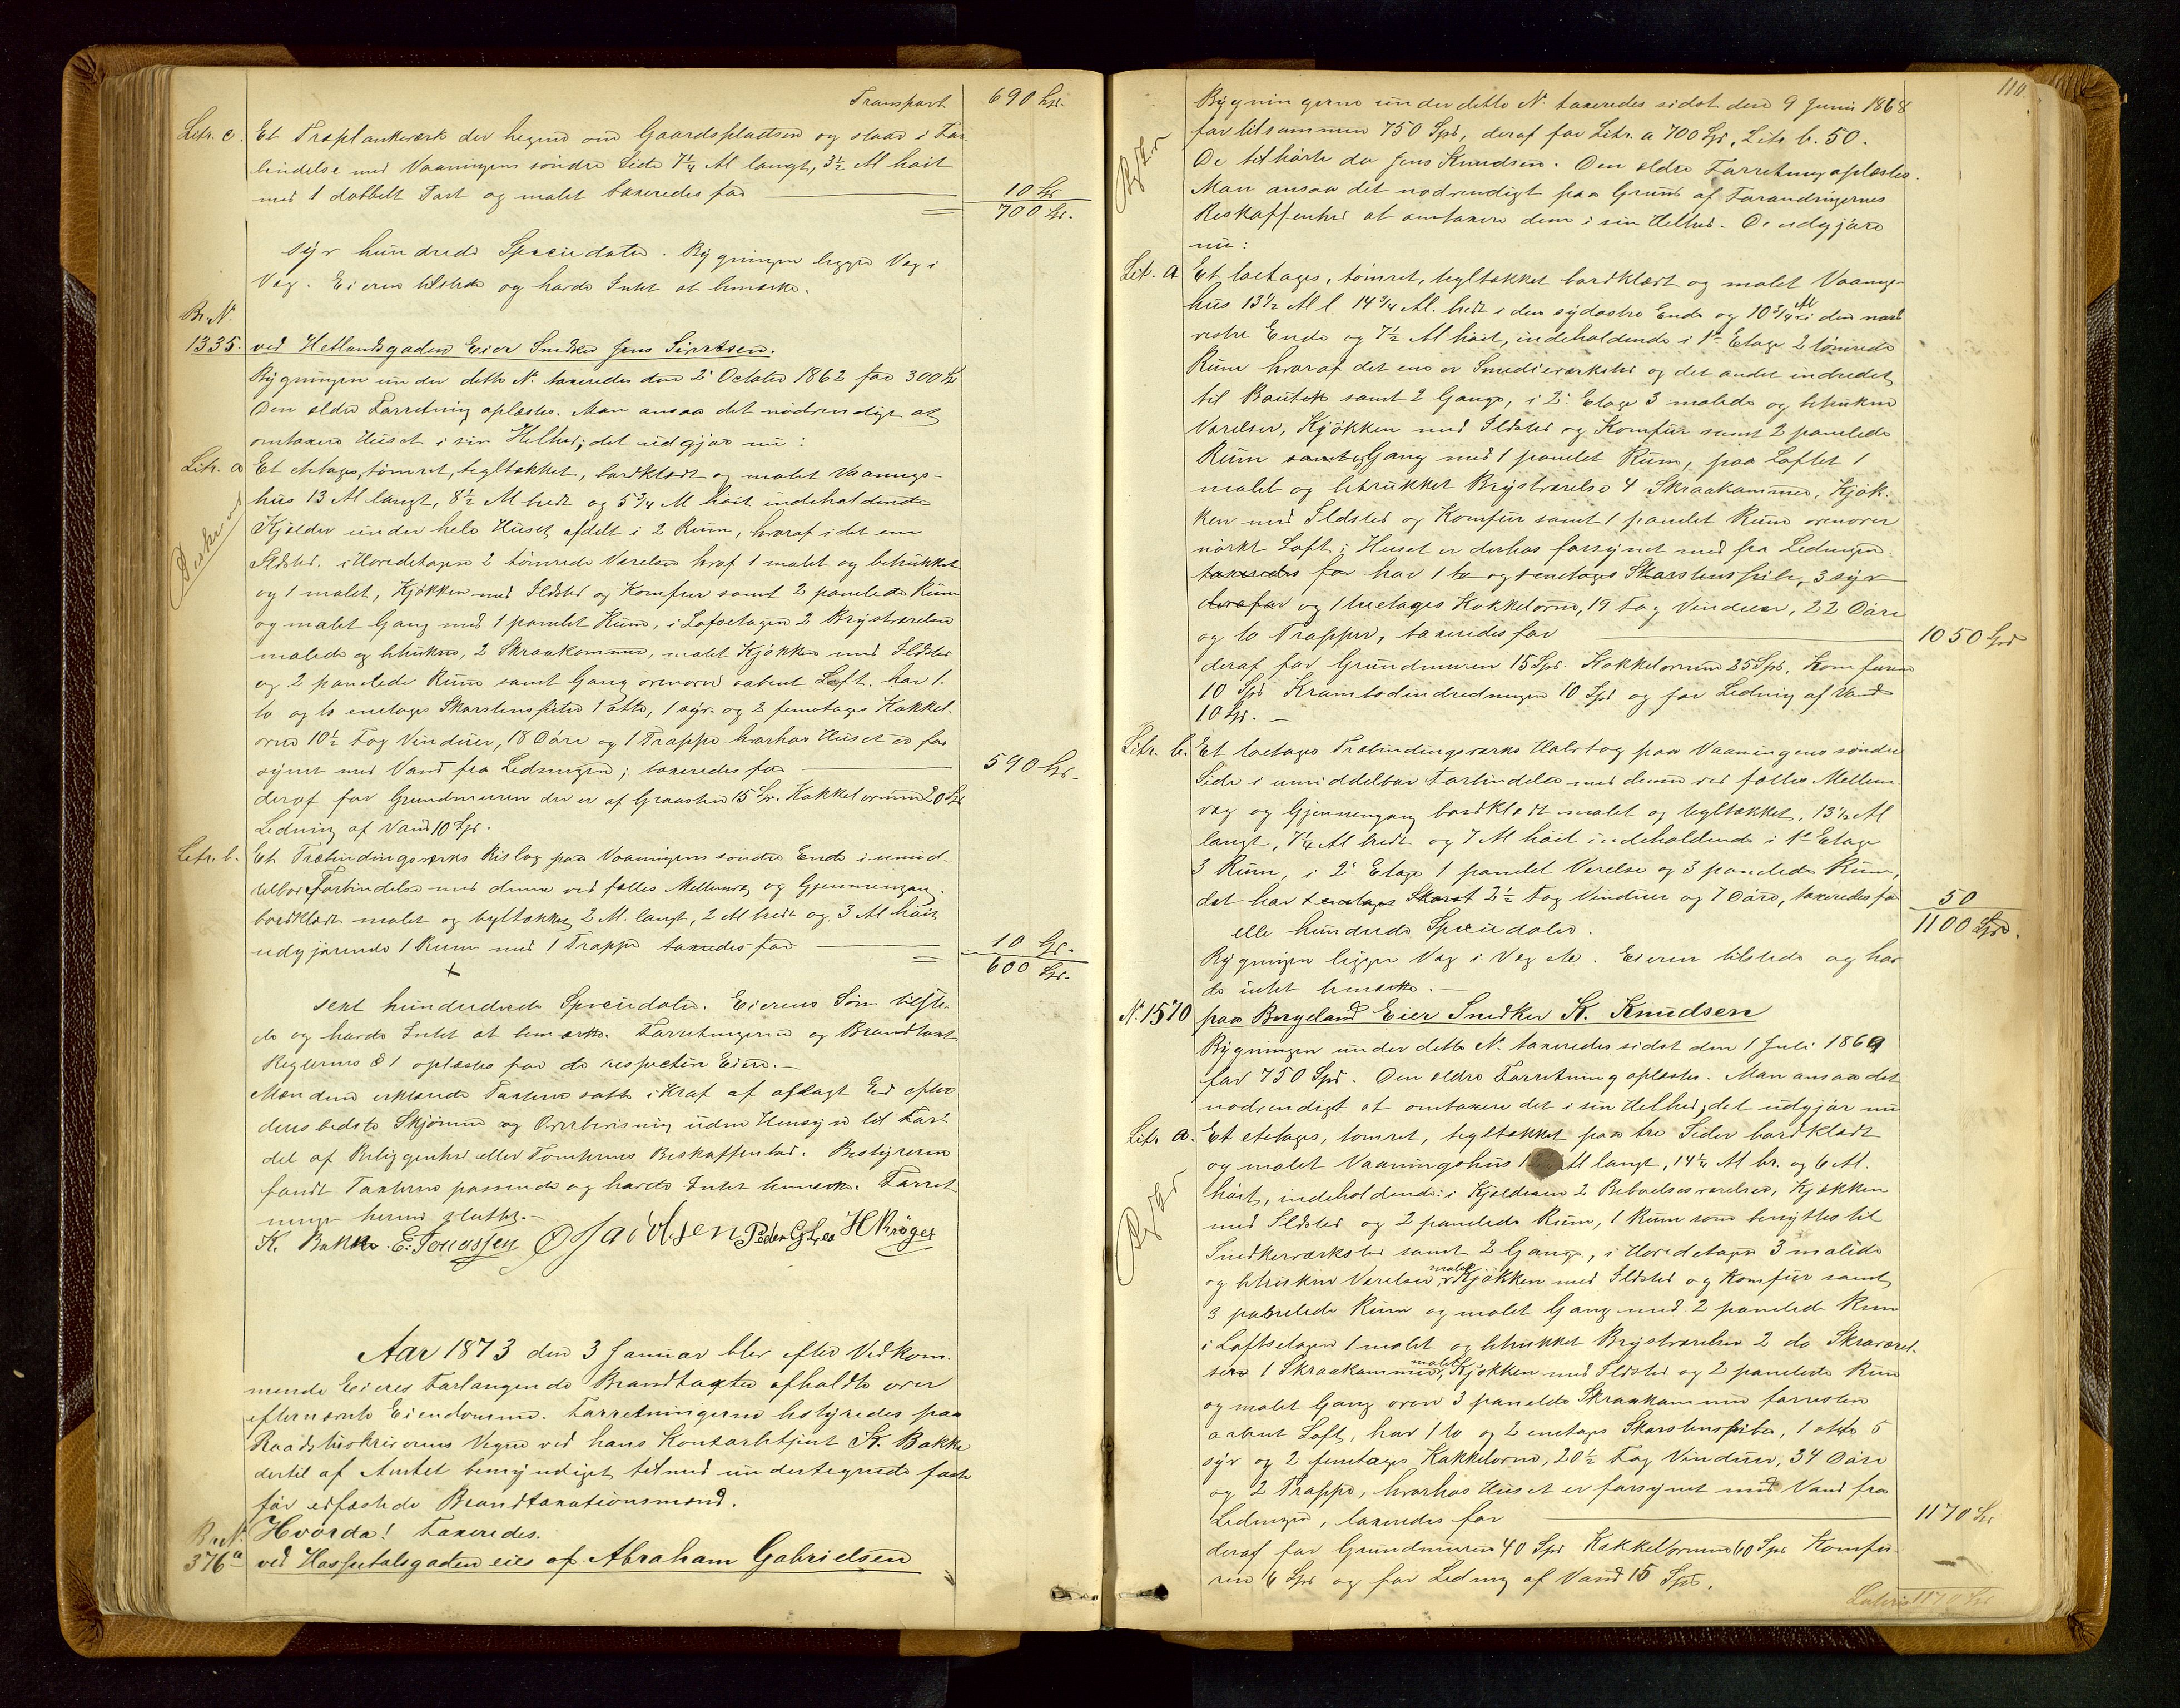 Transport 690 Spd.
Litr. c. Et Træplankeværk der hegner om Gaardspladsen og staar i For-
bindelse med Vaaningens söndre Side 7¼ Al langt, 3½ Al höit
med 1 dobbelt Port og malet taxeredes for 10 Spd
700 Spd.
syv hundrede Speciedaler. Bygningen ligger Væg i
Væg. Eieren tilstede og havde Intet at bemærke.
Br. N.
1335. ved Hetlandsgaden Eier Snedker Jens Sivertsen.
Bygningen under dette N. taxeredes den 2 October 1862 for 300 Spd
Den ældre Forretning oplæstes. Man ansaa det nödvendigt at
omtaxere Huset i sin Helhed; det udgjör nu:
Litr. a Et etetages, tömret, tegltækket, bordklædt og malet Vaanings-
hus 13 Al langt, 8½ Al bredt og 5¾ Al höit indeholdende
Kjelder under hele Huset afdelt i 2 Rum, hvoraf i det ene
Ildsted. i Hovedetagen 2 tömrede Værelser hvoraf 1 malet og betrukket
og 1 malet, Kjökken med Ildsted og Komfur samt 2 panelede Rum
og malet Gang med 1 panelet Rum, i Loftsetagen 2 Brystværelser
malede og betrukne, 2 Skraakammer, malet Kjökken med Ildsted
og 2 panelede Rum samt Gang ovenover aabent Loft. har 1
to og to enetages Skorstenspiber 1 otte, 1 syv og 2 femetages Kakkel-
ovne 10½ Fag Vinduer, 18 Döre og 1 Trappe hvorhos Huset er for
synet med Vand fra Ledningen; taxeredes for 590 Spd.
deraf for Grundmuren der er af Graasten 15 Sp. Kakkelovnene 20 Spd
Ledning af Vand 10 Spd.
Litr. b. Et Træbindingsværks Bislag paa Vaaningens söndre Ende i umid-
delbar Forbindelse med denne ved fælles Mellemvæg og Gjennemgang.
bordklædt malet og tegltækket 2 Al. langt, 2 Al bredt og 3 Al höit
udgjörende 1 Rum med 1 Trappe taxeredes for 10 Spd.
600 Spd.
sext hundrede Speciedaler. Eierens Sön tilste-
de og havde Intet at bemærke. Forretningerne og Brandtaxt
Reglernes § 1 oplæstes for de respective Eiere.
Mændene erklærede Taxterne satte i Kraf af aflagt Ed efter
deres bedste Skjönnende og Overbevisning uden Hensyn til For-
del af Beliggenhed eller Tomternes Beskaffenhed. Bestyreren
fandt Taxterne passende og havde Intet bemærke. Forret
ningen hermed sluttet.
K. Bakke. E. Tonassen O Jacobsen Peder G Lea H Kröger
Aar 1873 den 3 Januar blev efter Vedkom-
mende Eieres Forlangende Brandtaxter afholdte over
efternævnte Eiendomme. Forretningerne bestyredes paa
Raadstueskriverens Vegne ved hans Kontorbetjent K. Bakke
dertil af Amtet bemyndiget tilmed undertegnede faste
för edfæstede Brandtaxationsmænd.
Hvorda! Taxeredes.
Br. N.
376ª ved Hospitalsgaden eies af Abraham Gabrielsen
110.
Bygningerne under dette N. taxeredes sidst den 9 Juni 1868
for tilsammen 750 Spd, deraf for Litr. a 700 Spd, Litr b. 50.
De tilhörte da Jens Knudsen. Den ældre Forretning oplæstes.
Man ansaa det nödvendigt paa Grund af Forandringernes
Beskaffenhed at omtaxere dem i sin Helhed. De udgjöre
nu:
Lit. a Et toetages, tömret, tegltækket bordklædt og malet Vaanings-
hus 13½ Al l. 14¾ Al. bredt i den sydöstre Ende og 10¾ Al i den nord
vestre Ende og 7½ Al höit, indeholdende i 1ste Etage 2 tömrede
Rum hvoraf det ene er Smedieværksted og det andet indredet
til Boutik samt 2 Gange, i 2. Etage 3 malede og betrukne
Værelser, Kjökken med Ildsted og Komfur samt 2 panelede
Rum samt og Gang med 1 panelet Rum, paa Loftet 1
malet og betrukket Brystværelse 4 Skraakammer, Kjök-
ken med Ildsted og Komfur samt 1 panelet Rum ovenover
mörkt Loft; Huset er derhos forsynet med fra Ledningen
taxeredes for har 1 to og 1 enetages Skorstenspibe, 3 syv
deraf for og 1 toetages Kakkelovne, 19 Fag Vinduer, 22 Döre
og to Trapper, taxeredes for 1050 Spd
deraf for Grundmuren 15 Spd. Kakkelovnene 25 Spd, Komfuren
10 Spd Krambodindredningen 10 Spd og for Ledning af Vand
10 Spd.
Litr. b. Et toetages Træbindingsværks Halvtag paa Vaaningens söndre
Side i umiddelbar Forbindelse med denne ved fælles Mellem
væg og Gjennemgang bordklædt malet og tegltækket, 13½ Al
langt, 7¼ Al bredt og 7 Al höit indeholdende i 1ste Etage
3 Rum, i 2. Etage 1 panelet Værelse og 3 panelede Rum,
det har 1 enetages Skorst 2½ Fag Vinduer og 7 Döre, taxeredes for 50
1100 Spd.
elle hundrede Speciedaler.
Bygningen ligger Væg i Væg No. Eieren tilstede og hav
de intet bemærke.
N. 1570 paa Bergeland Eier Snedker K. Knudsen
Bygningen under dette N. taxeredes sidst den 1 Juli 1869
for 750 Spd. Den ældre Forretning oplæstes. Man ansaa det
nödvendigt at omtaxere det i sin Helhed; det udgjör nu
Litr a. Et etetages, tömret, tegltækket paa tre Sider bordklædt
og malet Vaaningshus Al langt, 14¼ Al br. og 6 Al.
höit, indeholdende: i Kjelderen 2 Beboelsesværelser, Kjökken
med Ildsted og 2 panelede Rum, 1 Rum som benyttes til
Snedkerværksted samt 2 Gange, i Hovedetagen 3 malede
og betrukne Værelser, malet Kjökken med Ildsted og Komfur samt
3 panelede Rum og malet Gang med 2 panelede Rum
i Loftsetagen 1 malet og betrukket Brystværelse 2 do Skraværel-
ser 1 Skraakammer, malet Kjökken med Ildsted og 2 panelede Rum
og malet Gang oven 3 panelede Skraakammer forresten
aabent Loft, har 1 to og 2 enetages Skorstenspiber, 1 otte 5
syv og 2 femetages Kakkelovne, 20½ Fag Vinduer, 34 Döre
og 2 Trapper, hvorhos Huset er forsynet med Vand fra
Ledningen, taxeredes for 1170 Spd
deraf for Grundmuren 40 Spd Kakkelovnene 60 Spd Komfu-
ren 6 Spd og for Ledning af Vand 15 Spd.
Lateris 1170 Spd